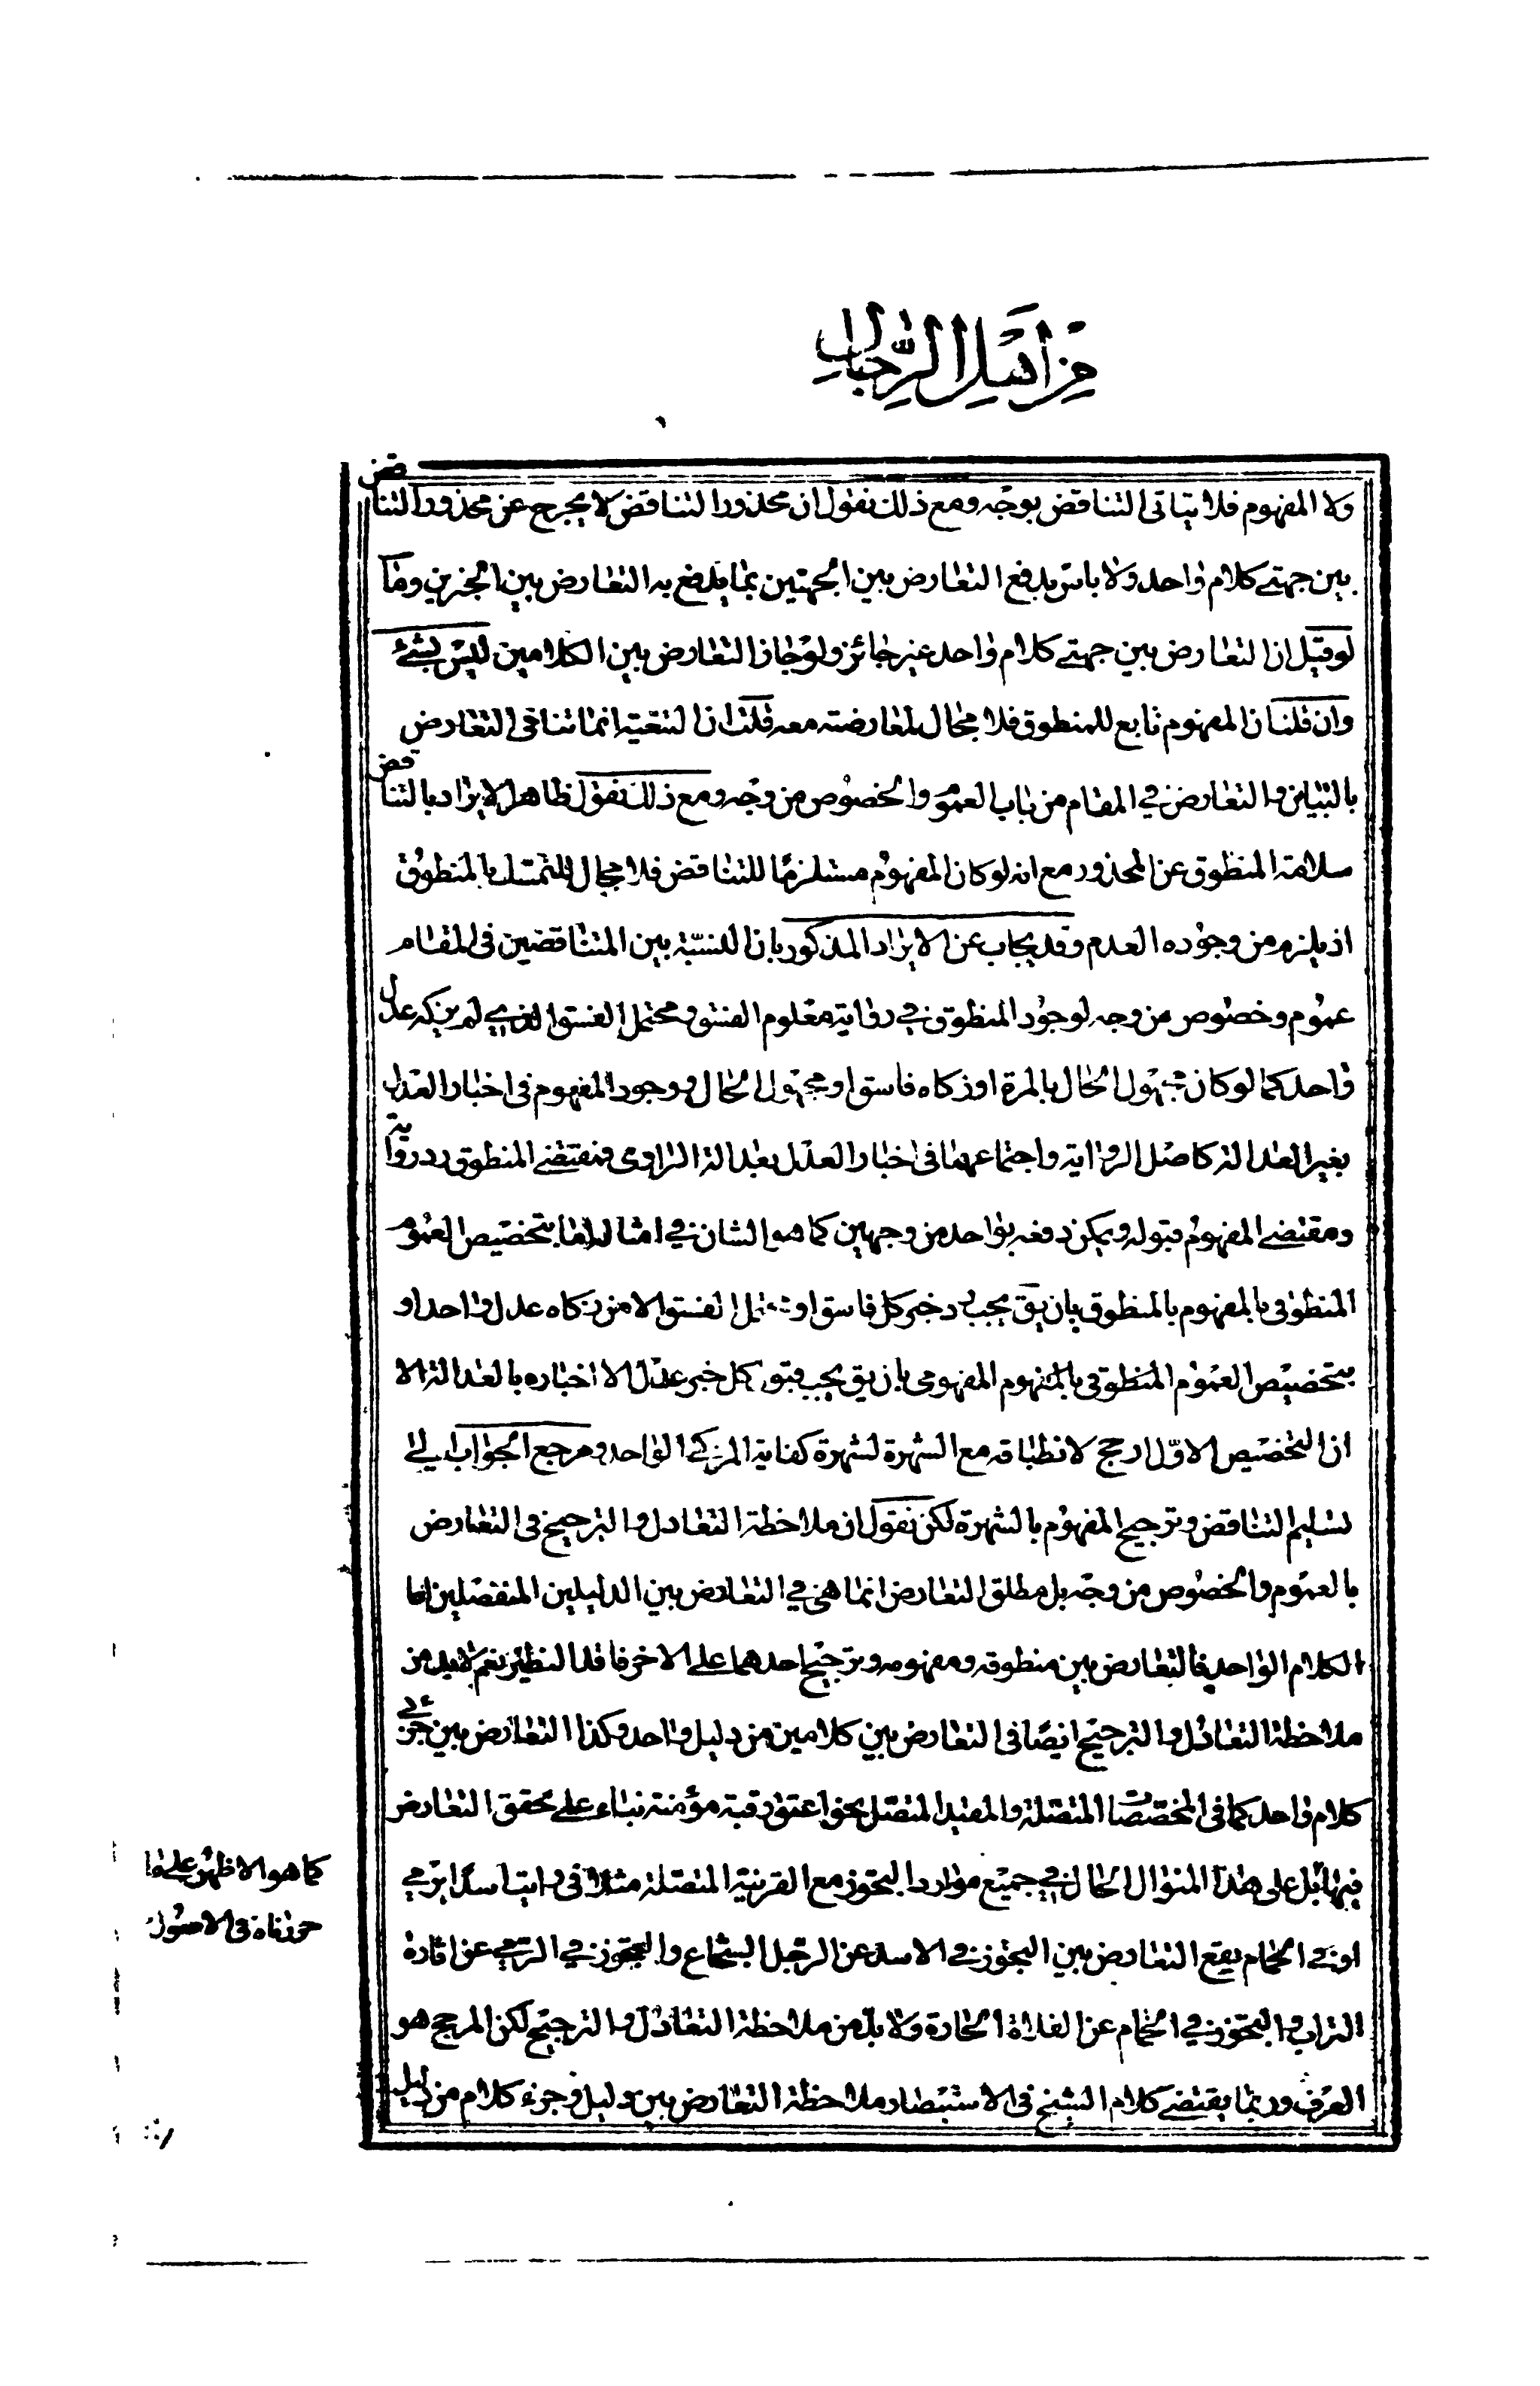 من اهل الرجال
ولا المفهوم فلا يتاتى التناقض بوجه ومع ذلك نقول ان محذور التناقض لا يخرج عن محذور التناقض
بين جهتى كلام واحد ولا باس بدفع التعارض بين الجهتين بما يدفع به التعارض بين الخبرين وما
لو قيل ان التعارض بين جهتى كلام واحد غير جائز ولو جاز التعارض بين الكلامين ليس بشئ
وان قلت ان المفهوم تابع للمنطوق فلا مجال لمعارضته معه قلت ان التبعية انما تنافى التعارض
بالتباين والتعارض فى المقام من باب العموم والخصوص من وجه ومع ذلك نقول ظاهر الايراد بالتناقض
سلامة المنطوق عن المحذور مع انه لو كان المفهوم مستلزما للتناقض فلا مجال للتمسك بالمنطوق
اذ يلزم من وجوده العدم وقد يجاب عن الايراد المذكور بان النسبة بين المتناقضين فى المقام
عموم وخصوص من وجه لوجود المنطوق فى رواية معلوم الفسق ومحتمل الفسق الذى لم يزكه عدل
واحد كما لو كان مجهول الحال بالمرة او زكاه فاسق او مجهول الحال ووجود المفهوم فى اخبار العدل
بغير العدالة كاصل الرواية واجتماعهما فى اخبار العدل بعدالة الراوى فمقتضى المنطوق رد رواية
ومقتضى المفهوم قبوله ويمكن دفعه بواحد من وجهين كما هو الشان فى امثال اما بتخصيص العموم
المنطوقى بالمفهوم بالمنطوق بان يق يجب رد خبر كل فاسق او محتمل الفسق الا من زكاه عدل واحد او
بتخصيص العموم المنطوقى بالمفهوم المفهومى بان يق يجب قبول كل خبر عدل الا اخباره بالعدالة الا
ان التخصيص الاول ارجح لانطباقه مع الشهرة لشهرة كفاية المزكى الواحد ومرجع الجواب الى
تسليم التناقض وترجيح المفهوم بالشهرة لكن نقول ان ملاحظة التعادل والترجيح فى التعارض
بالعموم والخصوص من وجه بل مطلق التعارض انما هى فى التعارض بين الدليلين المنفصلين اما
الكلام الواحد فالتعارض بين منطوقه ومفهومه وترجيح احدهما على الاخر فاقد النظير نعم لابد من
ملاحظة التعادل والترجيح ايضا فى التعارض بين كلامين من دليل واحد وكذا التعارض بين جزئى
كلام واحد كما فى المخصصات المتصلة والمقيد المتصل نحو اعتق رقبة مؤمنة بناء على تحقق التعارض
فيها بل على هذا المنوال الحال فى جميع موارد التجوز مع القرينة المتصلة مثلا فى رايت اسدا يرمى
او فى الحمام يقع التعارض بين التجوز فى الاسد عن الرجل الشجاع والتجوز فى الرمى عن اثارة
التراب والتجوز فى الحمام عن الفلاة الحارة ولا بد من ملاحظة التعادل والترجيح لكن المرجح هو
العرف وربما يقتضى كلام الشيخ فى الاستبصار ملاحظة التعارض بين دليل وجزء كلام من دليل
كما هو الاظهر على ما
حررناه فى الاصول